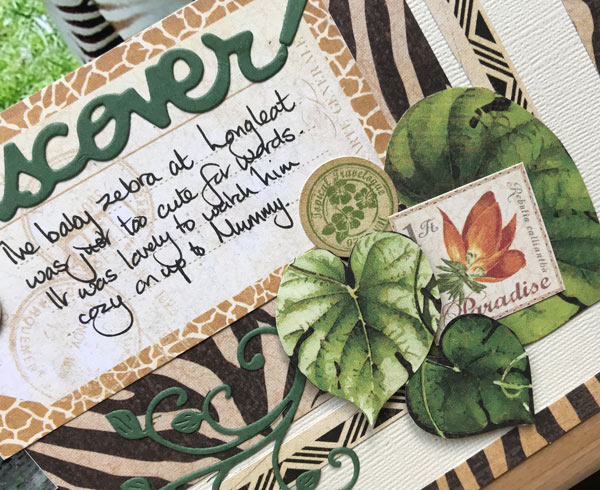 scover!
The baby zebra at Longleat
was just too cute for words.
It was lovely to watch him
cozy on up to Mummy.
Topical Travelogue
1 Fr.
Rebutia calliantha
Paradise